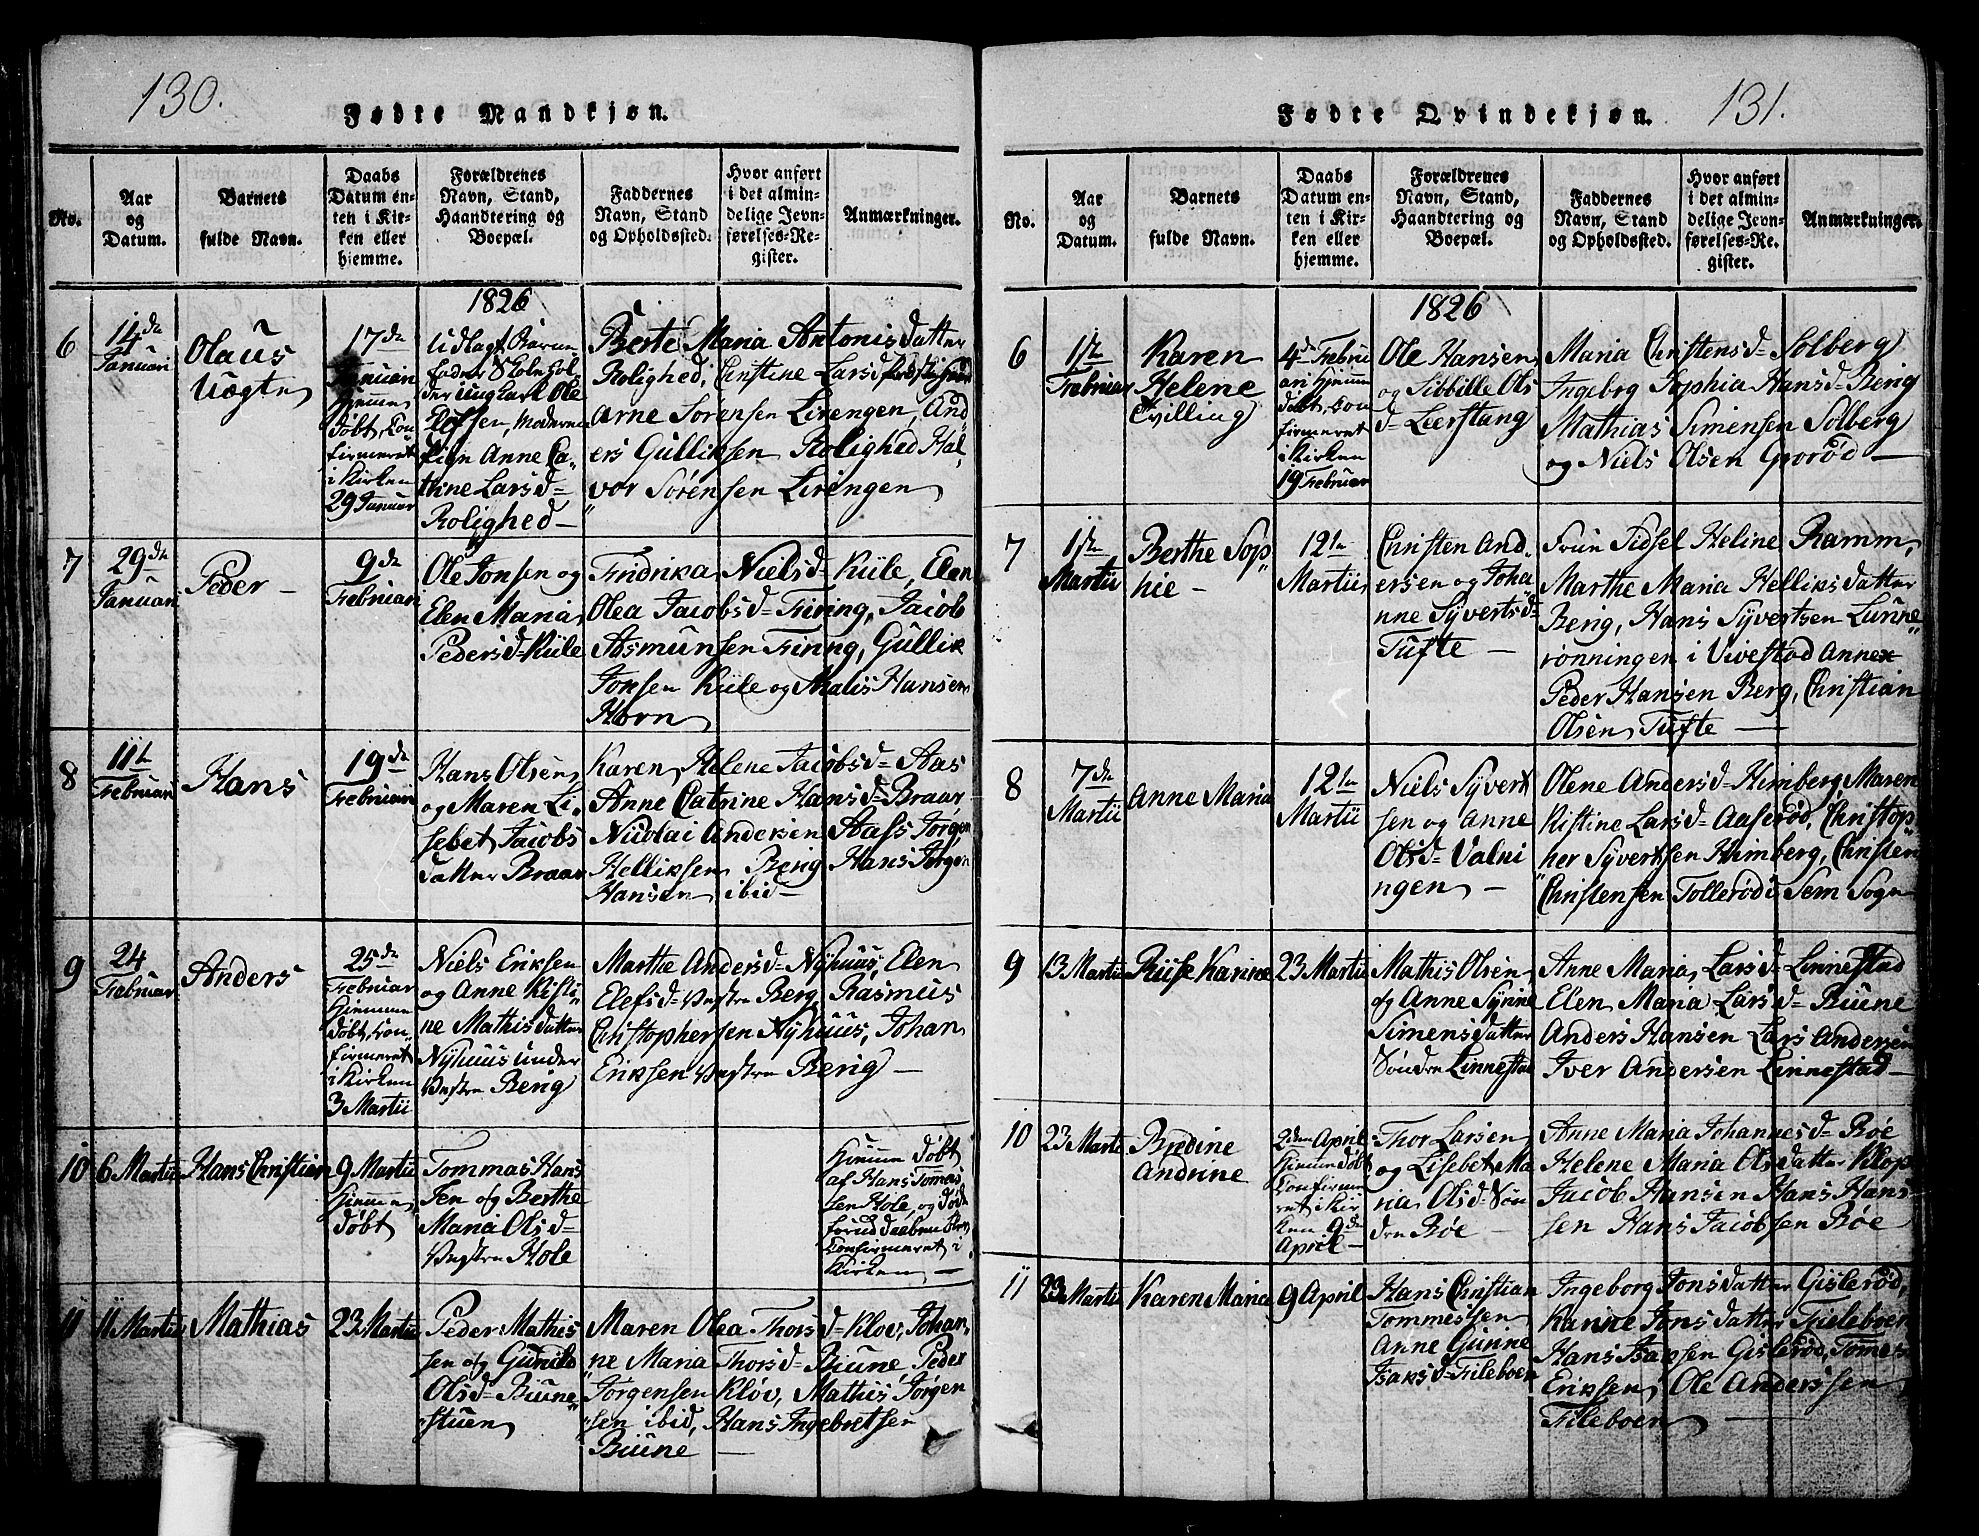 130.
Fødte Mandkjøn.
No.
Aar
og
Datum.
Barnets
fulde Navn.
Daabs
Datum en-
ten i Kir-
ken eller
hjemme.
Forældrenes
Navn, Stand,
Haandtering og
Boepæl.
Faddernes
Navn, Stand
og Opholdssted.
Hvor anført
i det almin-
delige Jevn-
førelses-Re-
gister.
Anmærkninger.
1826
6
14de
Januari
Olaus
17de
Januari
Hjemme
døbt, Con
firmeret
i Kirken
29 Januar
Udlagt Barne
fader Skolehol
der ungkarl Ole
Elefsen, Moderen
Anne Ca-
thrine Larsd=
Rolighed—
Berte Maria Antonisdatter
Rolighed, Christine Larsd
Arne Sørensen Lirengen, And
ers Gulliksen Rolighed Hal,
vor Sørensen Lirengen
7
29de
Januari
Peder —
9de
Februari
Ole Jonsen og
Elen Maria
Pedersd= Kiile
Fridrika Nielsd= Kiile, Elen
Olea Jacobsd= Firing, Jacob
Asmunsen Firing, Gullik
Jonsen Kiile og Malis Hansen
Horn
8
11te
Februari
Hans
19de
Februari
Hans Olsen
og Maren Li-
sebet Jacobs
datter Braar
Karen Helene Jacobsd= Aas
Anne Catrine Hansd= Braar
Nicolai Andersen Aass Jørgen
Helliksen Berig Hans Jørgen
Hansen ibid—
9
24
Februar
Anders
25de
Februar
Hjemme
døbt, Con
firmeret
i Kirken
3 Martii
Niels Eriksen
og Anne Kisti
ne Mathisdatter
Nyhuus under
Vestre Berig
Marthe Andersd= Nyhuus, Elen
Elefsd= Vestre Berg, Rasmus
Christophersen Nyhuus, Johan
Eriksen Vestre Berig —
10
6 Martii
Hans Christian
9 Martii
Hjemme
døbt
Tommas Han
sen og Berthe
Maria Olsd=
Vestre Hole
Hjemme døbt
af Hans Tomas
sen Hole, og døde
forud Daabens
Confirmeret i
Kirken —
11
11 Martii
Mathias
23 Martii
Peder Mathis
sen og Gunild
Olsd= Biune
stuen
Maren Olea Thorsd= Kløv, Johan
ne Maria Thorsd= Biune Peder
Jørgensen Kløv, Mathis Jørgen
sen ibid, Hans Ingebretsen
Biune —
131.
Fødte Qvindekjøn.
No.
Aar
og
Datum.
Barnets
fulde Navn.
Daabs
Datum en-
ten i Kir-
ken eller
hjemme.
Forældrenes
Navn, Stand,
Haandtering og
Boepæl.
Faddernes
Navn, Stand
og Opholdssted.
Hvor anført
i det almin-
delige Jevn-
førelses-Re-
gister.
Anmærkninger.
1826
6
1ste
Februar
Karen
Helene
(Tvilling)
4de Febru
ari Hjemme
døbt, Con
firmeret
i Kirken
19 Februar
Ole Hansen
og Sibbille Ols
d= Leerstang
Maria Christensd= Solberg
Ingebog Sophia Hansd= Berig
Mathias Simensen Solberg
og Niels Olsen Gporød —
7
1ste
Martii
Berthe Sop
hie —
12te
Martii
Christen And
ersen og Joha
nne Syvertsd=
Tufte —
Frue Sidsel Heline Ramm,
Marthe Maria Helliksdatter
Berig, Hans Syvertsen Lunne
rønningen i Vivestad Annex
Peder Hansen Berg, Christian
Olsen Tufte —
8
7de
Martii
Anne Maria
12te
Martii
Niels Syvert
sen og Anne
Olsd= Valni
ngen —
Olene Andersd= Himberg, Maren
Kistine Larsd= Aaserød, Christop
her Syvertsen Himberg, Christen
Christensen Tollerød i Sem Sogn
9
13 Martii
Riise Karine
23 Martii
Mathis Olsen
og Anne Synne
Simensdatter
Søndre Linnestad
Anne Maria Larsd= Linnestad
Elen Maria Larsd= Biune
Anders Hansen Lars Andersen
Iver Andersen Linnestad —
10
23 Martii
Bredine
Andrine
2den April
Hjemmedøbt
Confirme
ret i Kir
ken 9de
April —
Thor Larsen
og Lisebet Ma
ria Olsd= Søn
dre Bøe
Anne Maria Johannesd= Bøe
Helene Maria Olsdatter Klop
Jacob Hansen Hans Han-
sen Hans Jacobsen Bøe
11
23 Martii
Karen Maria
9 April
Hans Christian
Tommessen
Anne Gunne
Isaksd= Fileboen
Ingeborg Jonsdatter Gislerød,
Karine Jonsdatter Fileboen
Hans Isaksen Gislerød, Tomes
Eriksen, Ole Anderssen
Fileboen —